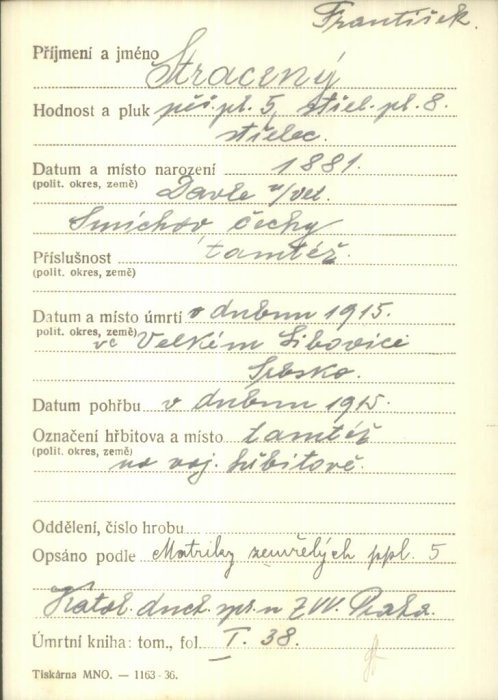 František.
Příjmení a jméno Stracený
Hodnost a pluk pěš. pl. 5, střel. pl. 8.
střelec.
Datum a místo narození 1881.
(polit. okres, země) Davle n/vel.
Smíchov Čechy
Příslušnost tamtéž.
(polit. okres, země)
Datum a místo úmrtí v dubnu 1915.
(polit. okres, země) ve Velkém Libovici
Srbsko.
Datum pohřbu v dubnu 1915.
Označení hřbitova a místo tamtéž
(polit. okres, země) na voj. hřbitově.
Oddělení, číslo hrobu
Opsáno podle Matriky zemřelých ppl. 5
Katol. duch. spr. u ZVV. Praha.
Úmrtní kniha: tom., fol. I. 38.
Tiskárna MNO. — 1163-36.